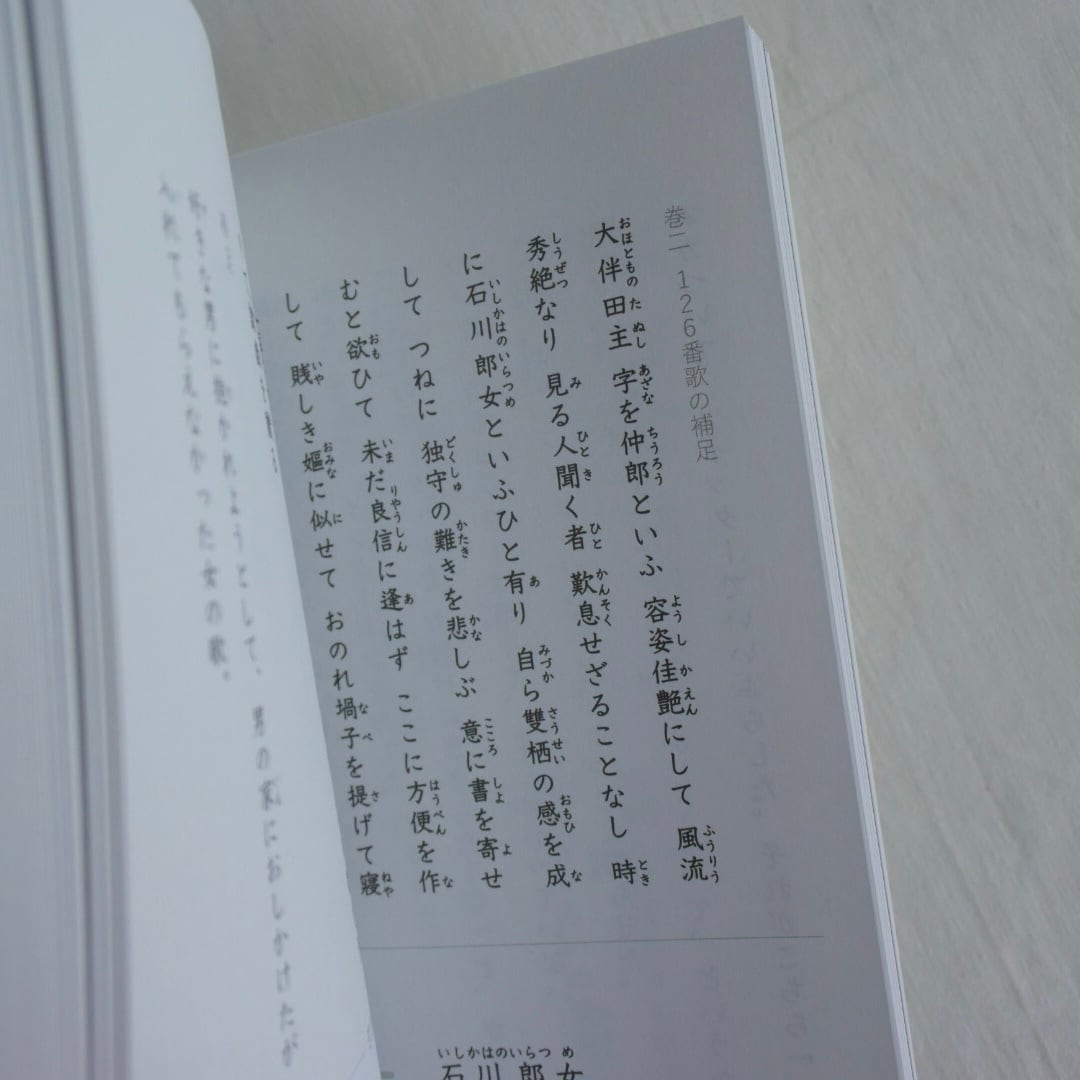 巻二 126番歌の補足
大伴田主 字を仲郎といふ 容姿佳艶にして 風流
秀絶なり 見る人聞く者 歎息せざることなし 時
に石川郎女といふひと有り 自ら雙栖の感を成
して つねに 独守の難きを悲しぶ 意に書を寄せ
むと欲ひて 未だ良信に逢はず ここに方便を作
して 賎しき嫗に似せて おのれ堝子を提げて寝
石川郎女
好きな男に抱かれようとして、男の家におしかけたが
入れてもらえなかった女の歌。